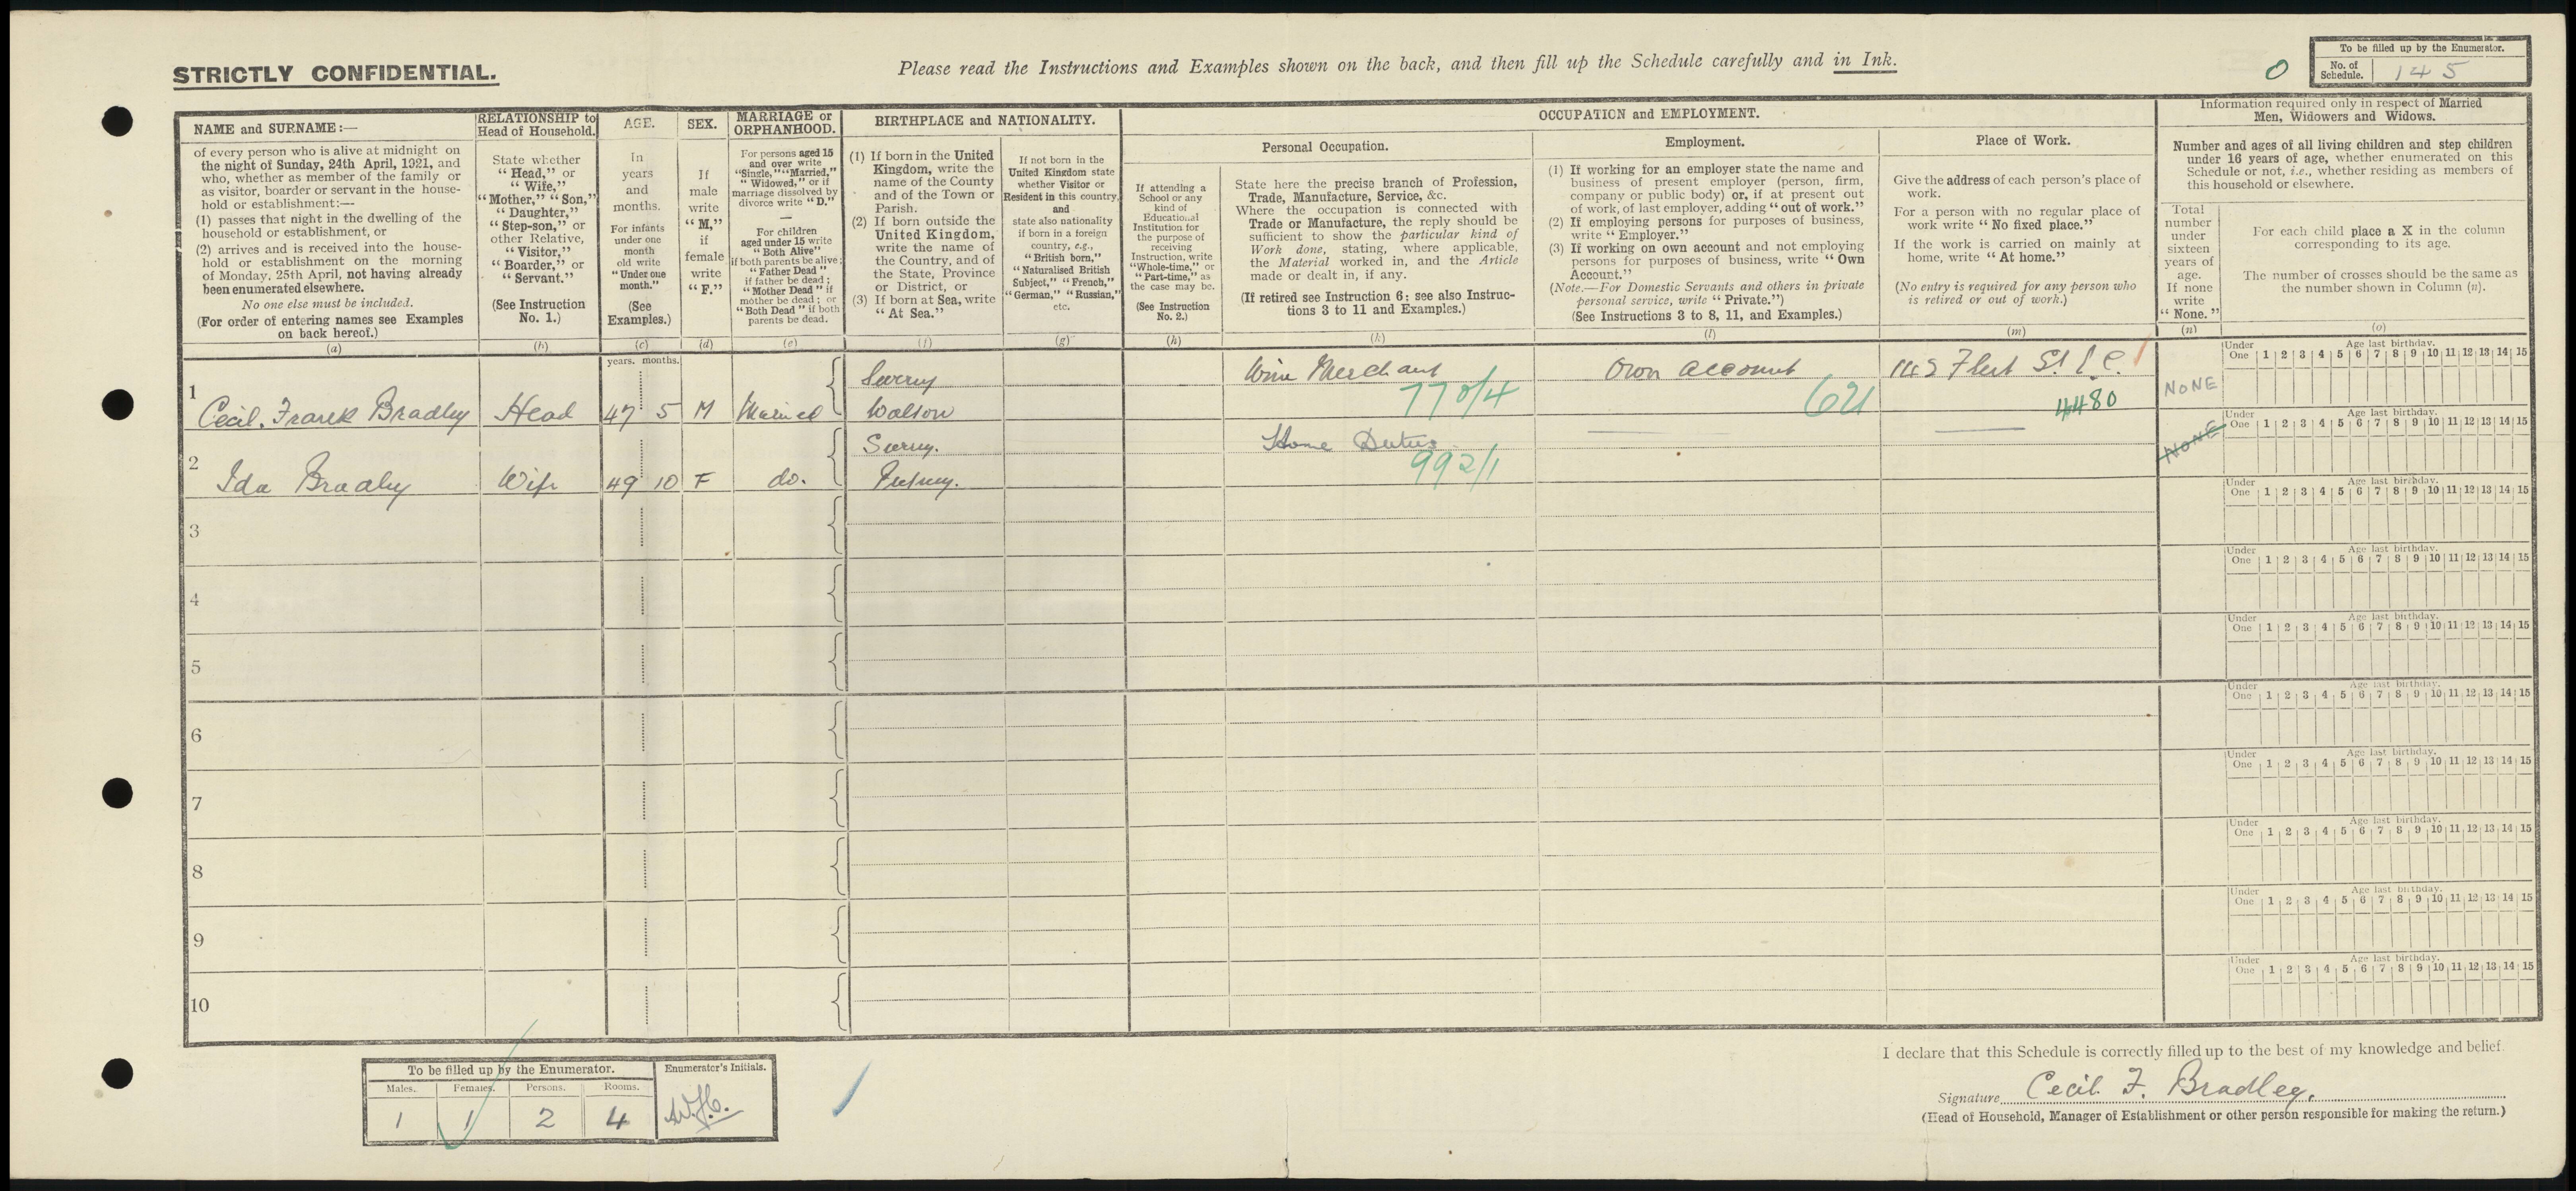 STRICTLY CONFIDENTIAL.
Please read the Instructions and Examples shown on the back, and then fill up the Schedule carefully and in Ink.
0
To be filled up by the Enumerator.
No. of Schedule. 145
NAME and SURNAME:—
of every person who is alive at midnight on
the night of Sunday, 24th April, 1921, and
who, whether as member of the family or
as visitor, boarder or servant in the house-
hold or establishment:—
(1) passes that night in the dwelling of the
household or establishment, or
(2) arrives and is received into the house-
hold or establishment on the morning
of Monday, 25th April, not having already
been enumerated elsewhere.
No one else must be included.
(For order of entering names see Examples
on back hereof.)
(a)
RELATIONSHIP to
Head of Household.
State whether
"Head," or
"Wife,"
"Mother," "Son,"
"Daughter,"
"Step-son," or
other Relative,
"Visitor,"
"Boarder," or
"Servant."
(See Instruction
No. 1.)
(b)
AGE.
In
years
and
months.
For infants
under one
month
old write
"Under one
month."
(See
Examples.)
(c)
SEX.
If
male
write
"M,"
if
female
write
"F."
(d)
MARRIAGE or
ORPHANHOOD.
For persons aged 15
and over write
"Single," "Married,"
"Widowed," or if
marriage dissolved by
divorce write "D."
—
For children
aged under 15 write
"Both Alive"
if both parents be alive;
"Father Dead"
if father be dead;
"Mother Dead" if
mother be dead; or
"Both Dead" if both
parents be dead.
(e)
BIRTHPLACE and NATIONALITY.
(1) If born in the United
Kingdom, write the
name of the County
and of the Town or
Parish.
(2) If born outside the
United Kingdom,
write the name of
the Country, and of
the State, Province
or District, or
(3) If born at Sea, write
"At Sea."
(f)
If not born in the
United Kingdom state
whether Visitor or
Resident in this country,
and
state also nationality
if born in a foreign
country, e.g.,
"British born,"
"Naturalised British
Subject," "French,"
"German," "Russian,"
etc.
(g)
OCCUPATION and EMPLOYMENT.
If attending a
School or any
kind of
Educational
Institution for
the purpose of
receiving
Instruction, write
"Whole-time," or
"Part-time," as
the case may be.
(See Instruction
No. 2.)
(h)
Personal Occupation.
State here the precise branch of Profession,
Trade, Manufacture, Service, &c.
Where the occupation is connected with
Trade or Manufacture, the reply should be
sufficient to show the particular kind of
Work done, stating, where applicable,
the Material worked in, and the Article
made or dealt in, if any.
(If retired see Instruction 6: see also Instruc-
tions 3 to 11 and Examples.)
(k)
Employment.
(1) If working for an employer state the name and
business of present employer (person, firm,
company or public body) or, if at present out
of work, of last employer, adding "out of work."
(2) If employing persons for purposes of business,
write "Employer."
(3) If working on own account and not employing
persons for purposes of business, write "Own
Account."
(Note.—For Domestic Servants and others in private
personal service, write "Private.")
(See Instructions 3 to 8, 11, and Examples.)
(l)
Place of Work.
Give the address of each person's place of
work.
For a person with no regular place of
work write "No fixed place."
If the work is carried on mainly at
home, write "At home."
(No entry is required for any person who
is retired or out of work.)
(m)
Information required only in respect of Married
Men, Widowers and Widows.
Number and ages of all living children and step children
under 16 years of age, whether enumerated on this
Schedule or not, i.e., whether residing as members of
this household or elsewhere.
Total
number
under
sixteen
years of
age.
If none
write
"None."
(n)
For each child place a X in the column
corresponding to its age.
The number of crosses should be the same as
the number shown in Column (n).
(o)
years. months.
Surrey
Wine Merchant
Own account
143 Fleet St E.C.
1 Cecil. Frank Bradley Head 47 5 M Married Walton 770/4 621 4480 NONE
Under One Age last birthday. 1 2 3 4 5 6 7 8 9 10 11 12 13 14 15
Surrey.
Home Duties
2 Ida Bradley Wife 49 10 F do. Putney. 992/1 NONE
Under One Age last birthday. 1 2 3 4 5 6 7 8 9 10 11 12 13 14 15
3
Under One Age last birthday. 1 2 3 4 5 6 7 8 9 10 11 12 13 14 15
4
Under One Age last birthday. 1 2 3 4 5 6 7 8 9 10 11 12 13 14 15
5
Under One Age last birthday. 1 2 3 4 5 6 7 8 9 10 11 12 13 14 15
6
Under One Age last birthday. 1 2 3 4 5 6 7 8 9 10 11 12 13 14 15
7
Under One Age last birthday. 1 2 3 4 5 6 7 8 9 10 11 12 13 14 15
8
Under One Age last birthday. 1 2 3 4 5 6 7 8 9 10 11 12 13 14 15
9
Under One Age last birthday. 1 2 3 4 5 6 7 8 9 10 11 12 13 14 15
10
Under One Age last birthday. 1 2 3 4 5 6 7 8 9 10 11 12 13 14 15
To be filled up by the Enumerator.
Enumerator's Initials.
Males. Females. Persons. Rooms.
1 1 2 4
I declare that this Schedule is correctly filled up to the best of my knowledge and belief.
Signature Cecil F. Bradley.
(Head of Household, Manager of Establishment or other person responsible for making the return.)